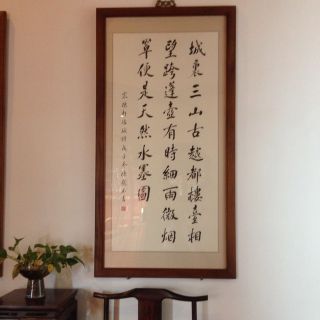 城裏三山古越都樓臺相
望跨蓬壺有時細雨微烟
罩便是天然水墨圖